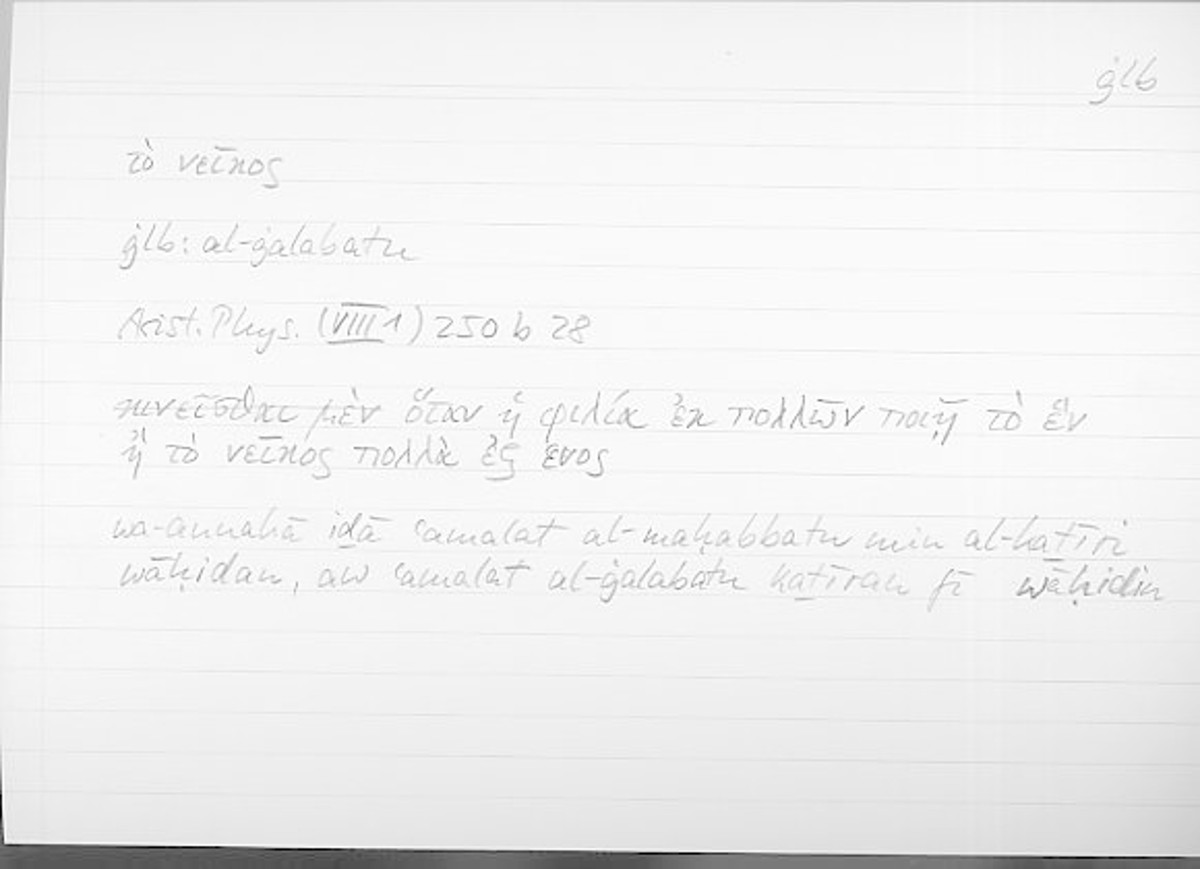 ġlb
τὸ νεῖκος
ġlb: al-ġalabatu
Arist. Phys. (VIII 1) 250 b 28
κινεῖσθαι μὲν ὅταν ἡ φιλία ἐκ πολλῶν ποιῇ τὸ ἕν
ἢ τὸ νεῖκος πολλὰ ἐξ ἑνος
wa-annahā iḏā ʿamalat al-maḥabbatu min al-kaṯīri
wāḥidan, aw ʿamalat al-ġalabatu kaṯīran fī wāḥidin